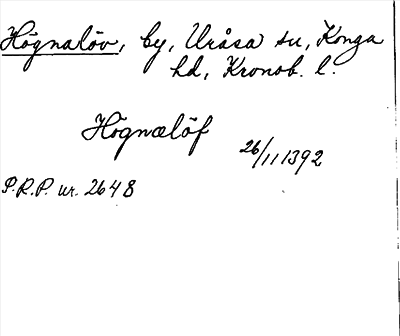 Högnalöv, by, Uråsa sn, Konga
hd, Kronob. l.
Högnælöf
26/11 1392
P.R.P. nr. 2648